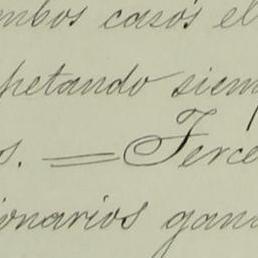 mbos casos el
petando siem
s. = Terce
ionarios gana